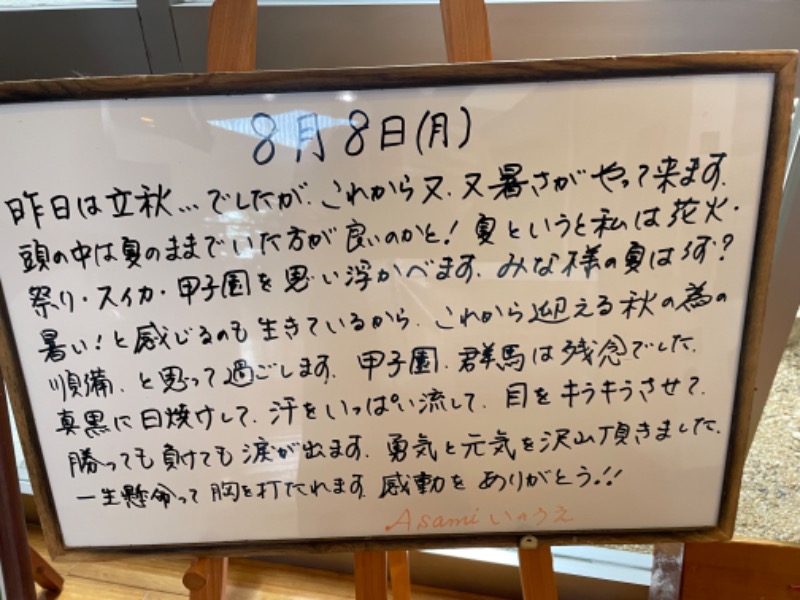 8月8日(月)
昨日は立秋…でしたが、これから又、又暑さがやって来ます。
頭の中は夏のままでいた方が良いのかと！夏というと私は花火・
祭り・スイカ・甲子園を思い浮かべます。みな様の夏は何？
暑い！と感じるのも生きているから、これから迎える秋の為の
順備、と思って過ごします。甲子園、群馬は残念でした。
真黒に日焼けして、汗をいっぱい流して、目をキラキラさせて、
勝っても負けても涙が出ます。勇気と元気を沢山頂きました。
一生懸命って胸を打たれます。感動をありがとう!!
Asamiいのうえ